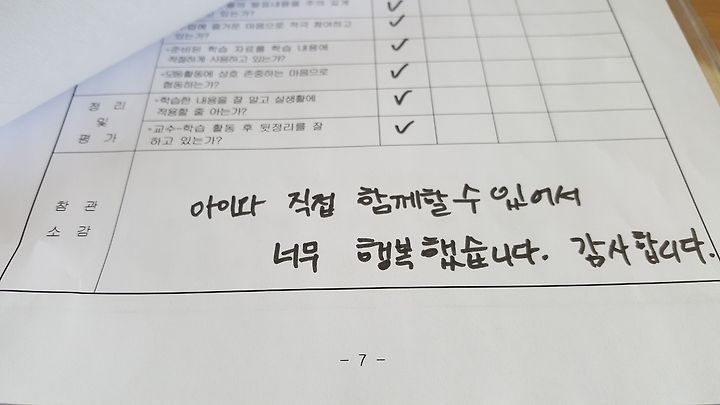 발표내용을 주의 깊게
고 있는가?
즐거운 마음으로 적극 참여하고
있는가?
-준비된 학습 자료를 학습 내용에
적절하게 사용하고 있는가?
-모둠활동에 상호 존중하는 마음으로
협동하는가?
정 리
및
평 가
-학습한 내용을 잘 알고 실생활에
적용할 줄 아는가?
-교수-학습 활동 후 뒷정리를 잘
하고 있는가?
참 관
소 감
아이와 직접 함께할 수 있어서
너무 행복했습니다. 감사합니다.
- 7 -